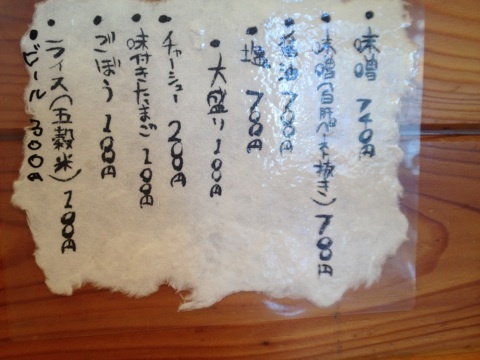 ・味噌 740円
・味噌(背脂ペースト抜き) 700円
・醤油 700円
・塩 700円
・大盛り 100円
・チャーシュー 200円
・味付きたまご 100円
・ごぼう 100円
・ライス(五穀米) 100円
・ビール 300円